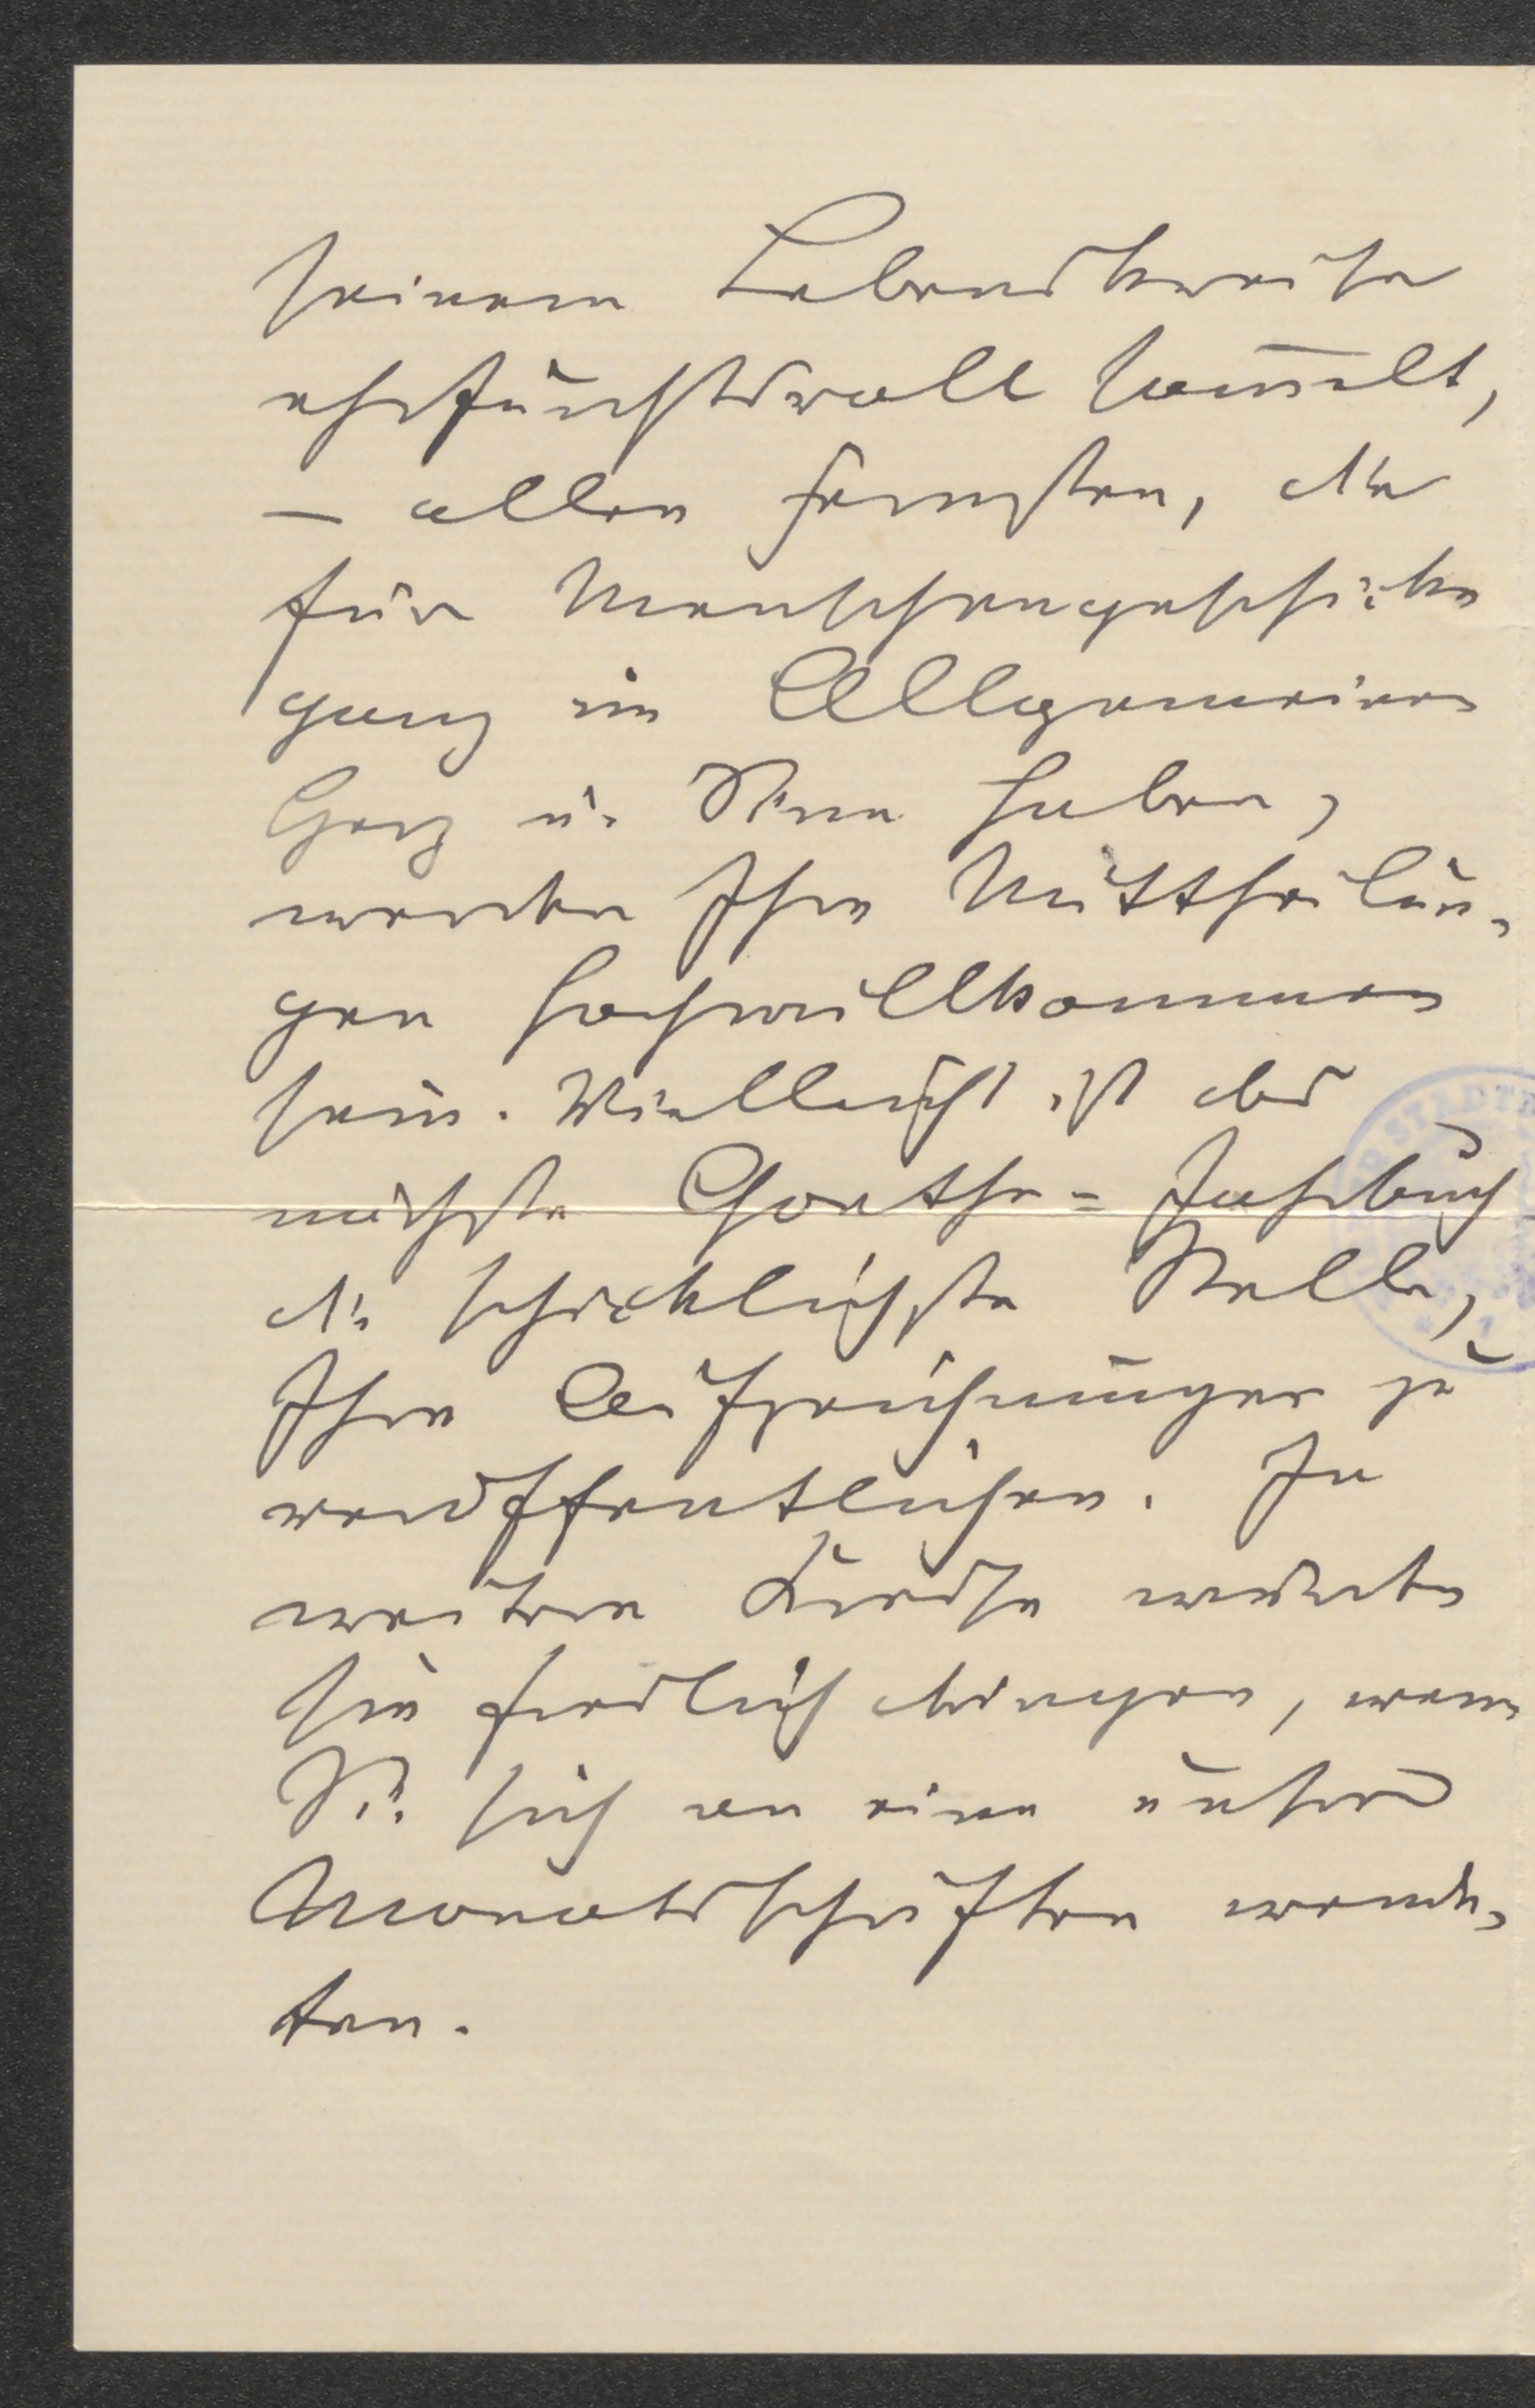 seinem Lebenskreise
ehrfurchtsvoll sammelt,
— allen Ernsten, die
für Menschengeschicke
ganz im Allgemeinen
Herz u. Sinn haben,
werden Ihre Mittheilun-
gen hochwillkommen
sein. Vielleicht ist das
nächste Goethe-Jahrbuch
die schicklichste Stelle,
Ihre Aufzeichnungen zu
veröffentlichen. In
weitere Kreise würden
sie freilich dringen, wenn
Sie sich an eine unsrer
Monatsschriften wende-
ten.